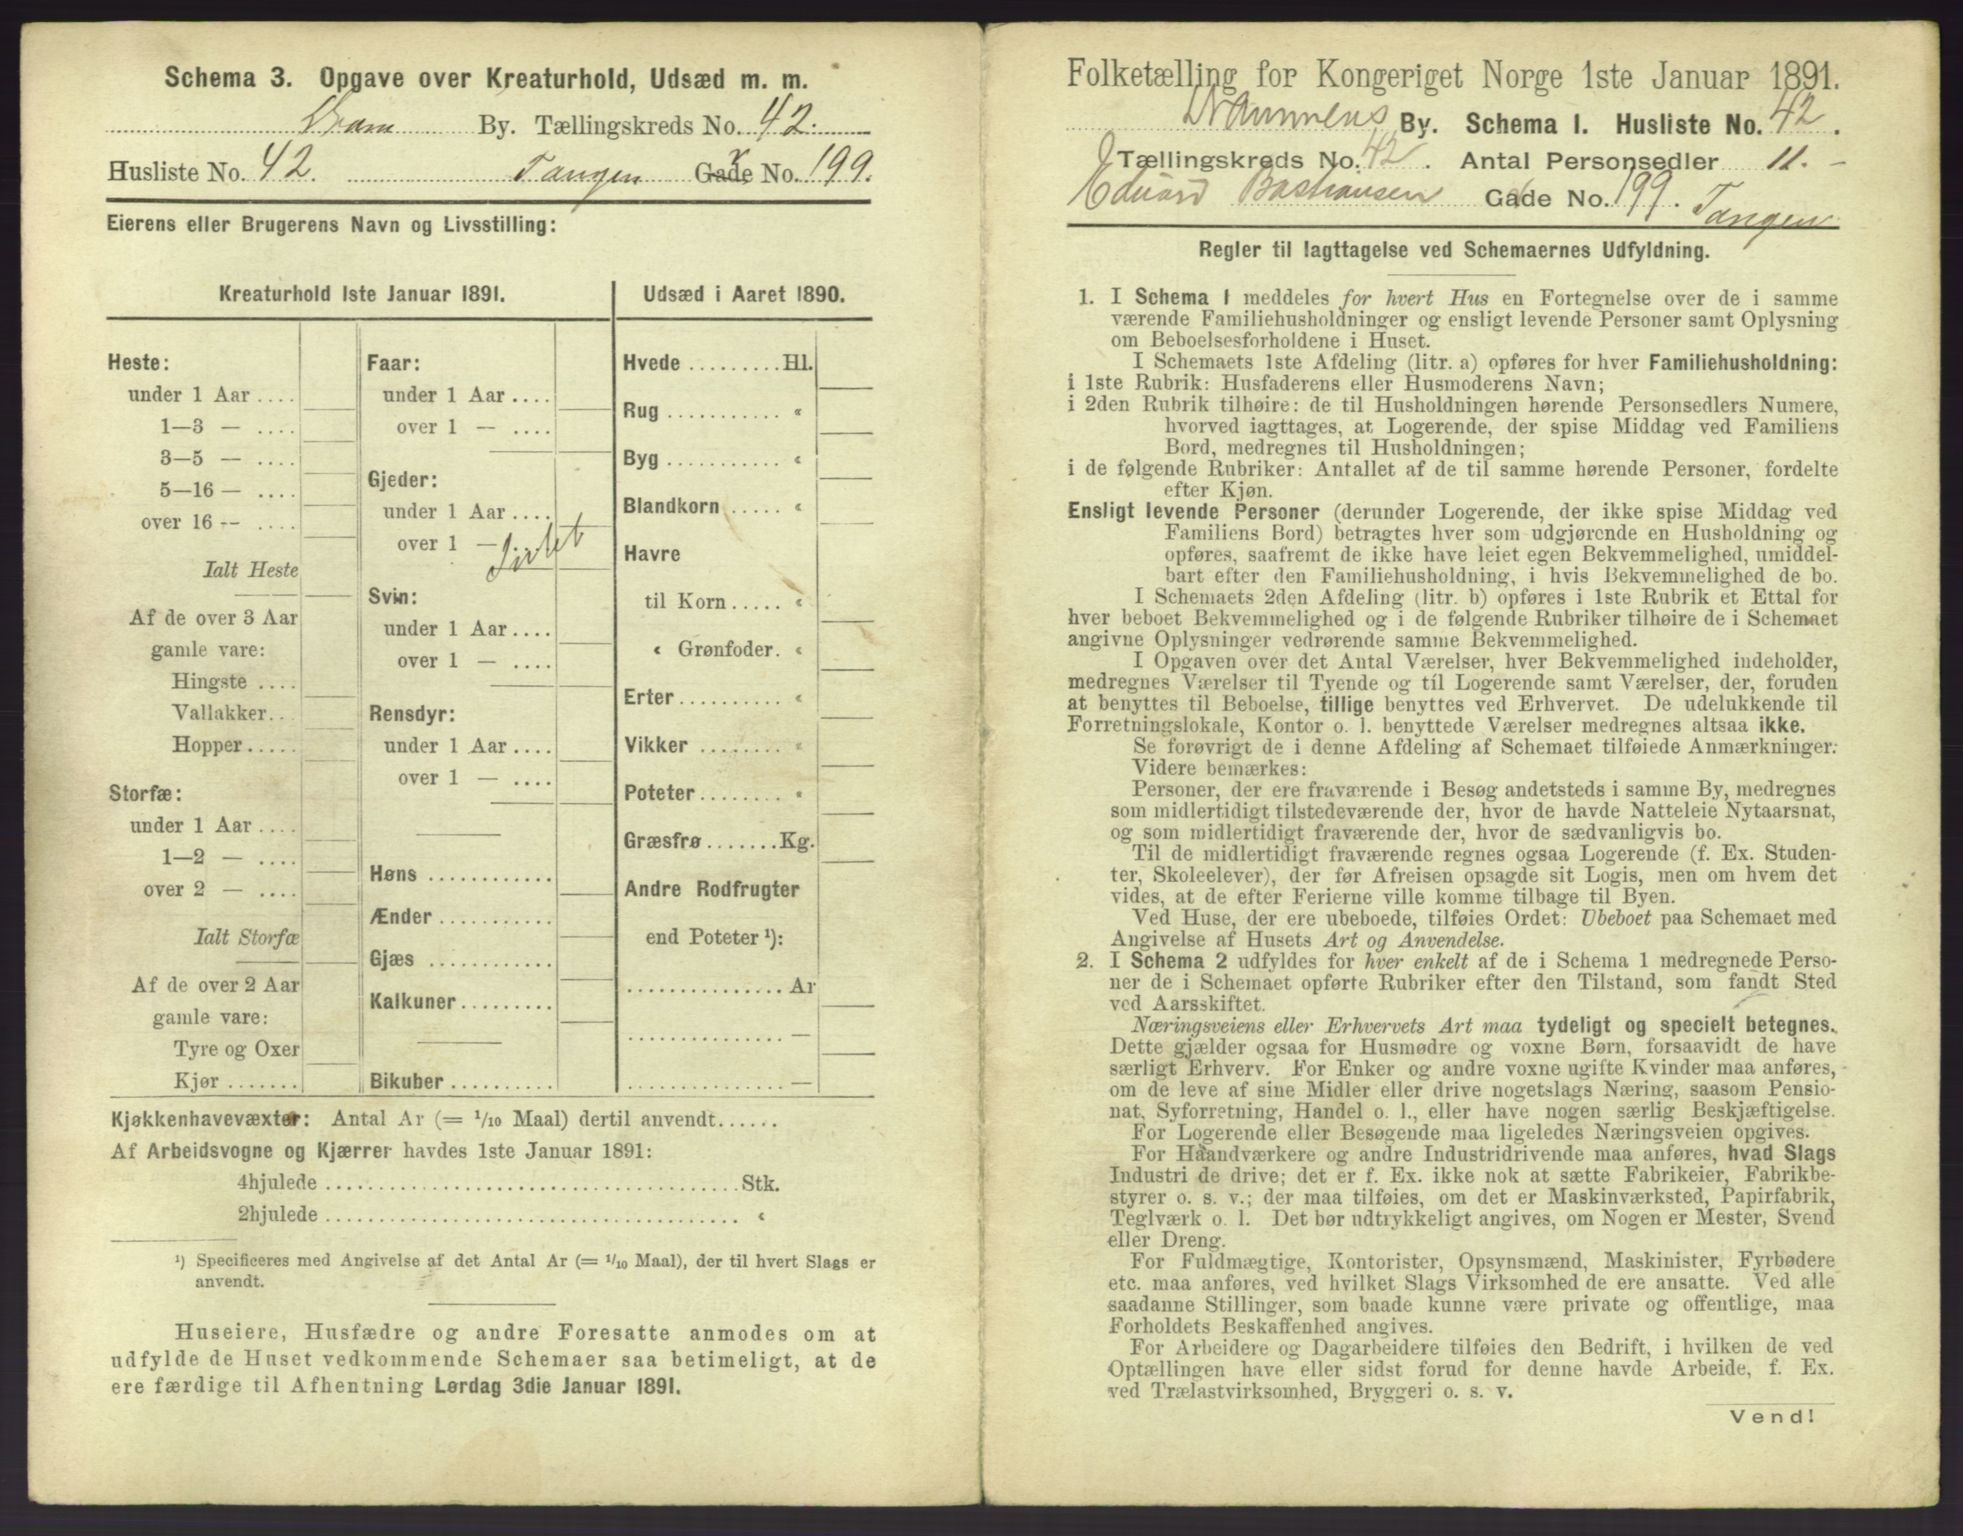 Schema 3. Opgave over Kreaturhold, Udsæd m. m.
Dram By. Tællingskreds No. 42.
Husliste No. 42. Tangen Gade No. 199.
Eierens eller Brugerens Navn og Livsstilling:
Kreaturhold 1ste Januar 1891.
Heste:
under 1 Aar ....
1—3 — ....
3—5 — ....
5—16 — ....
over 16 -- ....
Ialt Heste
Af de over 3 Aar
gamle vare:
Hingste ....
Vallakker...
Hopper.....
Storfæ:
under 1 Aar ....
1—2 — ....
over 2 — ....
Ialt Storfæ
Af de over 2 Aar
gamle vare:
Tyre og Oxer
Kjør .......
Faar:
under 1 Aar ....
over 1 — ....
Gjeder:
under 1 Aar ....
over 1 —
Svin:
under 1 Aar ....
over 1 — ....
Rensdyr:
under 1 Aar ....
over 1 — ....
Høns ............
Ænder ...........
Gjæs ............
Kalkuner.........
Bikuber ..........
Udsæd i Aaret 1890.
Hvede .........Hl.
Rug ........... «
Byg ........... «
Blandkorn ..... «
Havre
til Korn..... «
« Grønfoder. «
Erter.......... «
Vikker ........ «
Poteter........ «
Græsfrø .......Kg.
Andre Rodfrugter
end Poteter ¹):
...............Ar
............... —
............... —
Kjøkkenhavevæxter: Antal Ar (= 1/10 Maal) dertil anvendt......
Af Arbeidsvogne og Kjærrer havdes 1ste Januar 1891:
4hjulede .......................................Stk.
2hjulede ....................................... «
¹) Specificeres med Angivelse af det Antal Ar (= 1/10 Maal), der til hvert Slags er
anvendt.
Huseiere, Husfædre og andre Foresatte anmodes om at
udfylde de Huset vedkommende Schemaer saa betimeligt, at de
ere færdige til Afhentning Lørdag 3die Januar 1891.
Folketælling for Kongeriget Norge 1ste Januar 1891.
Drammens By. Schema 1. Husliste No. 42.
Tællingskreds No. 42. Antal Personsedler 11.-
Eduard Bastiansen Gade No. 199. Tangen
Regler til Iagttagelse ved Schemaernes Udfyldning.
1. I Schema 1 meddeles for hvert Hus en Fortegnelse over de i samme
værende Familiehusholdninger og ensligt levende Personer samt Oplysning
om Beboelsesforholdene i Huset.
I Schemaets 1ste Afdeling (litr. a) opføres for hver Familiehusholdning:
i 1ste Rubrik: Husfaderens eller Husmoderens Navn;
i 2den Rubrik tilhøire: de til Husholdningen hørende Personsedlers Numere,
hvorved iagttages, at Logerende, der spise Middag ved Familiens
Bord, medregnes til Husholdningen;
i de følgende Rubriker: Antallet af de til samme hørende Personer, fordelte
efter Kjøn.
Ensligt levende Personer (derunder Logerende, der ikke spise Middag ved
Familiens Bord) betragtes hver som udgjørende en Husholdning og
opføres, saafremt de ikke have leiet egen Bekvemmelighed, umiddel-
bart efter den Familiehusholdning, i hvis Bekvemmelighed de bo.
I Schemaets 2den Afdeling (litr. b) opføres i 1ste Rubrik et Ettal for
hver beboet Bekvemmelighed og i de følgende Rubriker tilhøire de i Schemaet
angivne Oplysninger vedrørende samme Bekvemmelighed.
I Opgaven over det Antal Værelser, hver Bekvemmelighed indeholder,
medregnes Værelser til Tyende og til Logerende samt Værelser, der, foruden
at benyttes til Beboelse, tillige benyttes ved Erhvervet. De udelukkende til
Forretningslokale, Kontor o. l. benyttede Værelser medregnes altsaa ikke.
Se forøvrigt de i denne Afdeling af Schemaet tilføiede Anmærkninger.
Videre bemærkes:
Personer, der ere fraværende i Besøg andetsteds i samme By, medregnes
som midlertidigt tilstedeværende der, hvor de havde Natteleie Nytaarsnat,
og som midlertidigt fraværende der, hvor de sædvanligvis bo.
Til de midlertidigt fraværende regnes ogsaa Logerende (f. Ex. Studen-
ter, Skoleelever), der før Afreisen opsagde sit Logis, men om hvem det
vides, at de efter Ferierne ville komme tilbage til Byen.
Ved Huse, der ere ubeboede, tilføies Ordet: Ubeboet paa Schemaet med
Angivelse af Husets Art og Anvendelse.
2. I Schema 2 udfyldes for hver enkelt af de i Schema 1 medregnede Perso-
ner de i Schemaet opførte Rubriker efter den Tilstand, som fandt Sted
ved Aarsskiftet.
Næringsveiens eller Erhvervets Art maa tydeligt og specielt betegnes.
Dette gjælder ogsaa for Husmødre og voxne Børn, forsaavidt de have
særligt Erhverv. For Enker og andre voxne ugifte Kvinder maa anføres,
om de leve af sine Midler eller drive nogetslags Næring, saasom Pensio-
nat, Syforretning, Handel o. l., eller have nogen særlig Beskjæftigelse.
For Logerende eller Besøgende maa ligeledes Næringsveien opgives.
For Haandværkere og andre Industridrivende maa anføres, hvad Slags
Industri de drive; det er f. Ex. ikke nok at sætte Fabrikeier, Fabrikbe-
styrer o. s. v.; der maa tilføies, om det er Maskinværksted, Papirfabrik,
Teglværk o. l. Det bør udtrykkeligt angives, om Nogen er Mester, Svend
eller Dreng.
For Fuldmægtige, Kontorister, Opsynsmænd, Maskinister, Fyrbødere
etc. maa anføres, ved hvilket Slags Virksomhed de ere ansatte. Ved alle
saadanne Stillinger, som baade kunne være private og offentlige, maa
Forholdets Beskaffenhed angives.
For Arbeidere og Dagarbeidere tilføies den Bedrift, i hvilken de ved
Optællingen have eller sidst forud for denne havde Arbeide, f. Ex.
ved Trælastvirksomhed, Bryggeri o. s. v.
Vend!